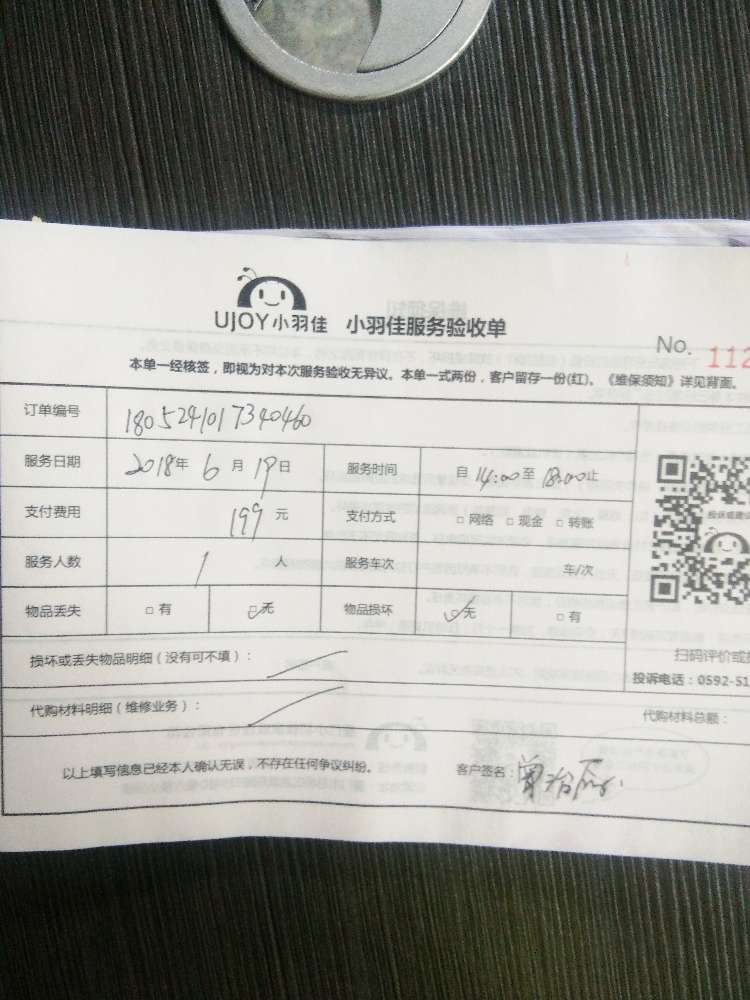 UJOY小羽佳 小羽佳服务验收单
No. 112
本单一经核签，即视为对本次服务验收无异议。本单一式两份，客户留存一份(红)。《维保须知》详见背面。
订单编号 1805241017340460
服务日期 2018年 6月 19日 服务时间 自 14:00 至 18:00 止
支付费用 199 元 支付方式 □ 网络 □ 现金 □ 转账
服务人数 1 人 服务车次 车/次
物品丢失 □ 有 ☑ 无 物品损坏 ☑ 无 □ 有
投诉或建议
损坏或丢失物品明细（没有可不填）：
扫码评价或投
投诉电话：0592-51
代购材料明细（维修业务）：
代购材料总额：
以上填写信息已经本人确认无误，不存在任何争议纠纷。 客户签名：